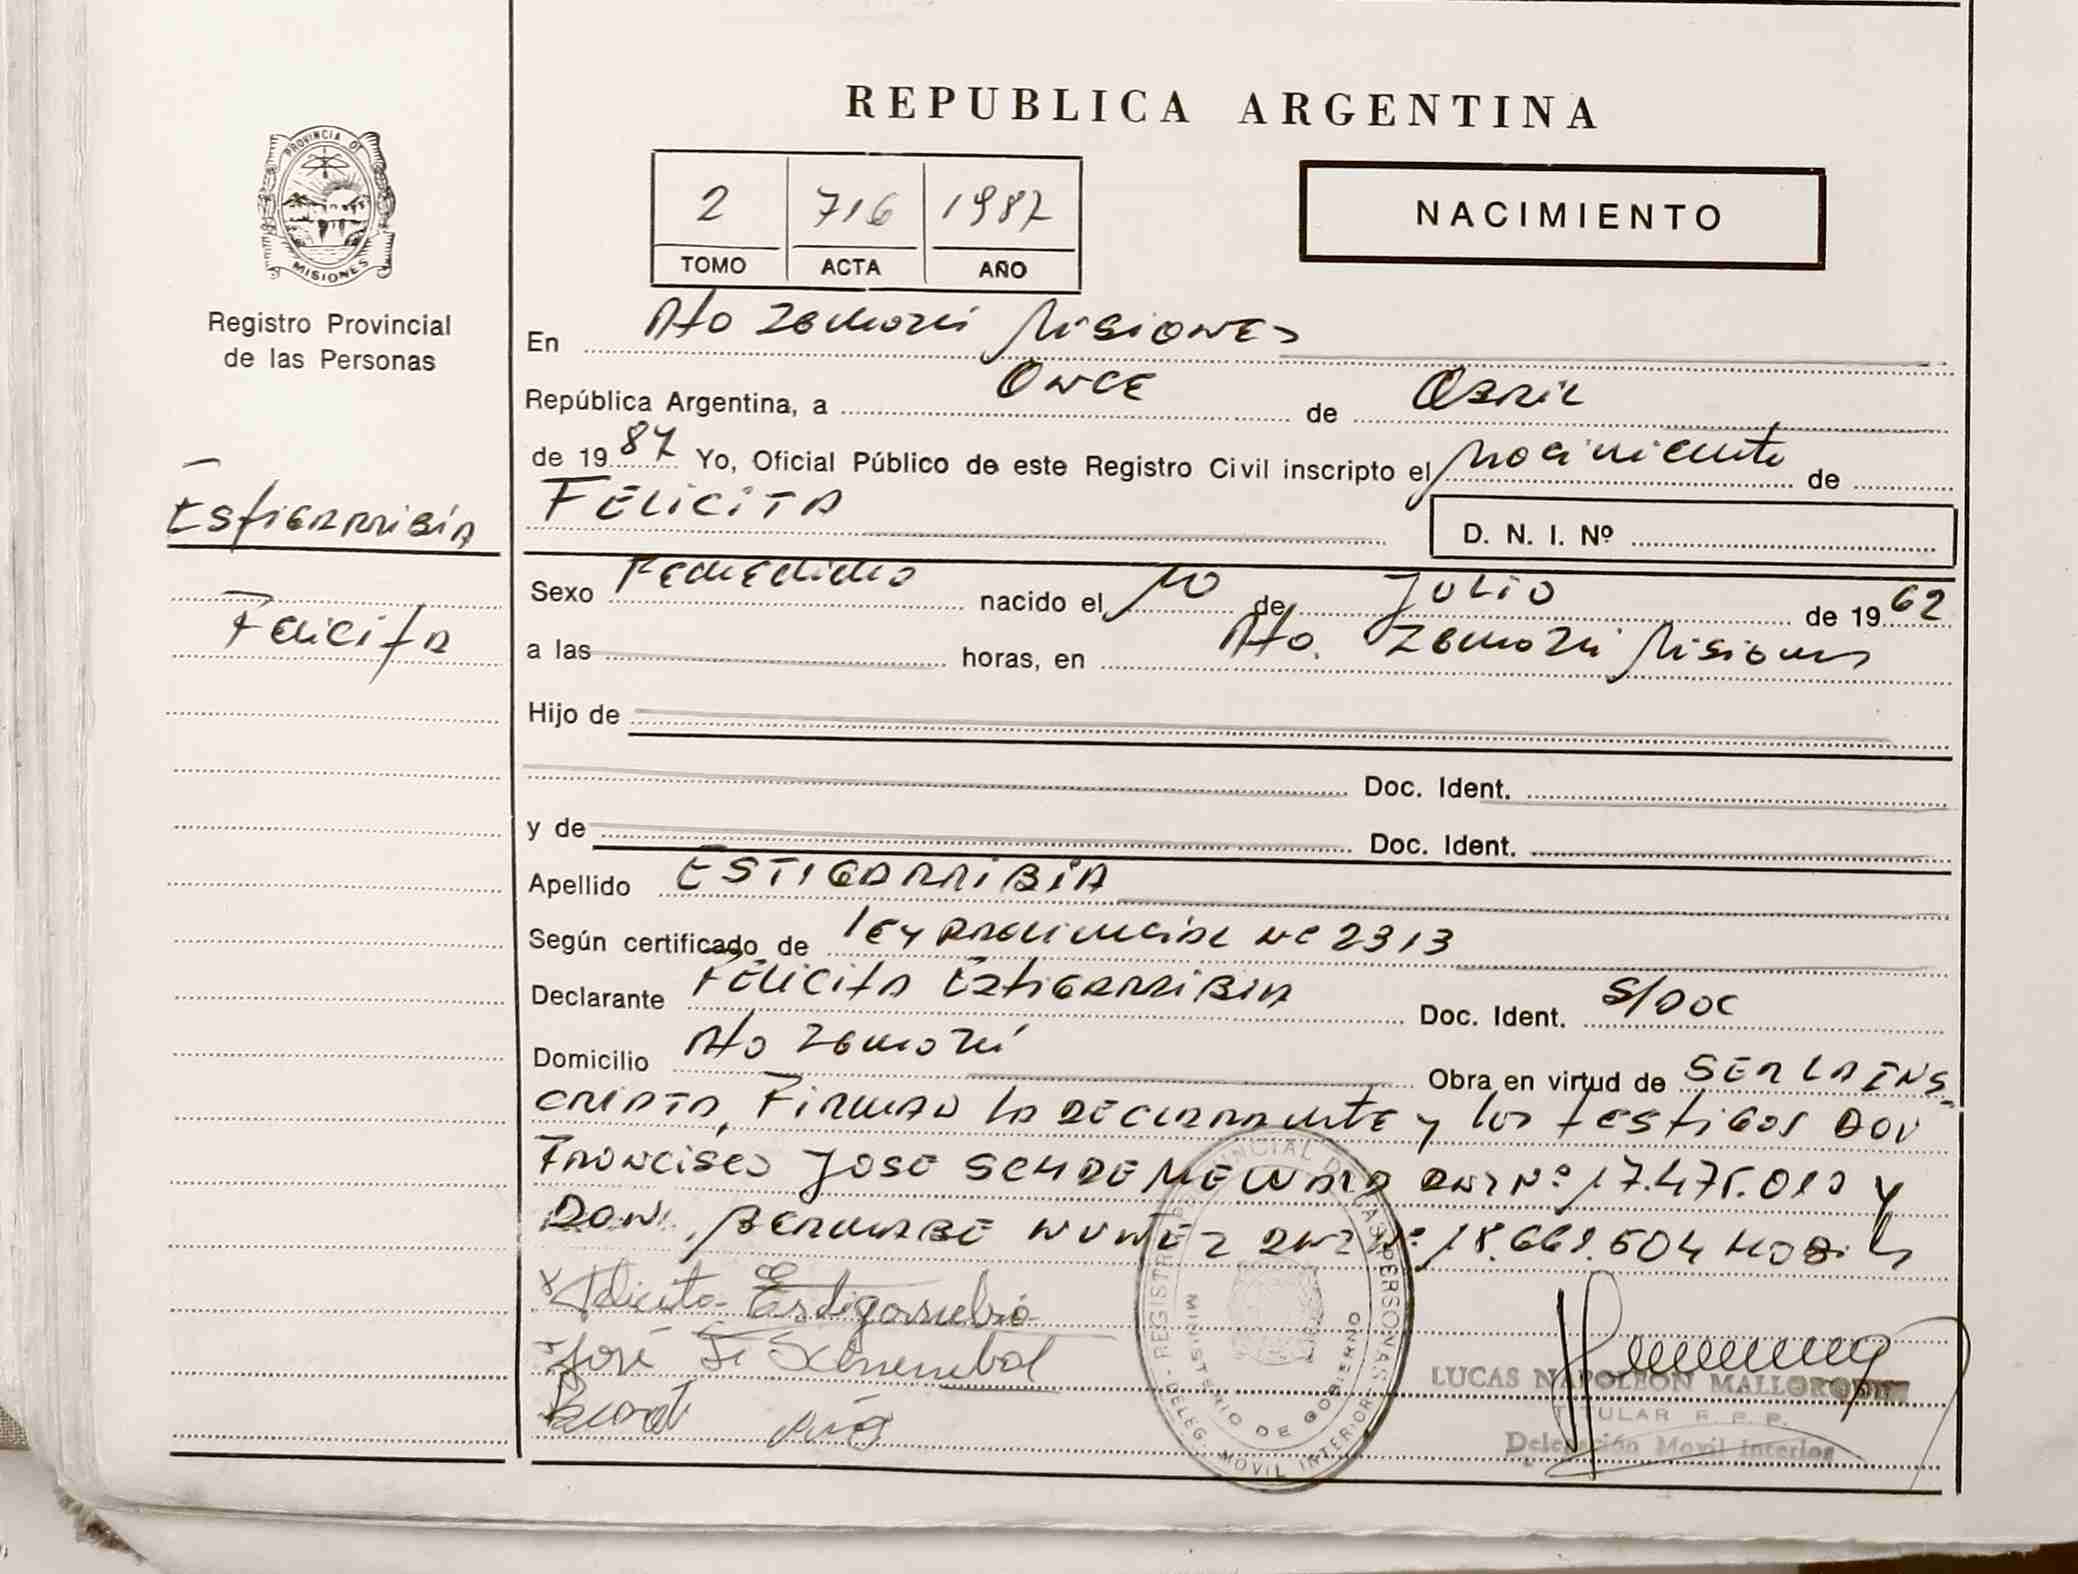 REPUBLICA ARGENTINA
2 716 1987
TOMO ACTA AÑO
NACIMIENTO
PROVINCIA DE
MISIONES
Registro Provincial
de las Personas
Estigarribia
Felicita
En Ato Zamora Misiones
República Argentina, a Once de Abril
de 1987 Yo, Oficial Público de este Registro Civil inscripto el Nacimiento de
FELICITA
D. N. I. Nº
Sexo Femenino nacido el 10 de Julio de 1962
a las horas, en Ato. Misiones
Hijo de
Doc. Ident.
y de Doc. Ident.
Apellido ESTIGARRIBIA
Según certificado de ley provincial Nº 2313
Declarante Felicita Estigarribia Doc. Ident. S/DOC
Domicilio Ato
Obra en virtud de SER LA INS
CRIPTA, Firman la declarante y los testigos Don
Francisco José DNI Nº 17.475.010 y
Don Bernabe Nuñez DNI Nº 18.669.504
Felicita Estigarribia
José
LUCAS NAPOLEON MALLORQUIN
TITULAR R. P. P.
Delegación Movil Interior
REGISTRO PROVINCIAL DE LAS PERSONAS
MINISTERIO DE GOBIERNO
DELEG. MOVIL INTERIOR